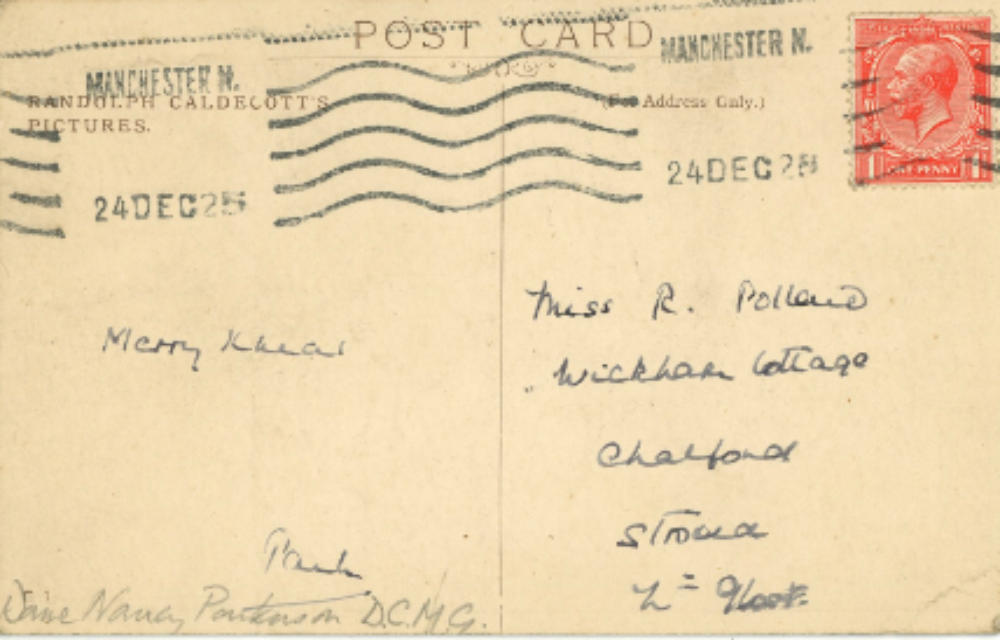 POST CARD
MANCHESTER N.
MANCHESTER N.
RANDOLPH CALDECOTT'S
PICTURES.
(For Address Only.)
24 DEC 25
24 DEC 25
ONE PENNY
1 1
Merry
Miss R. Pollard
Wickham Cottage
Chalford
Stroud
Glos.
Dame Nancy Parkinson D.C.M.G.